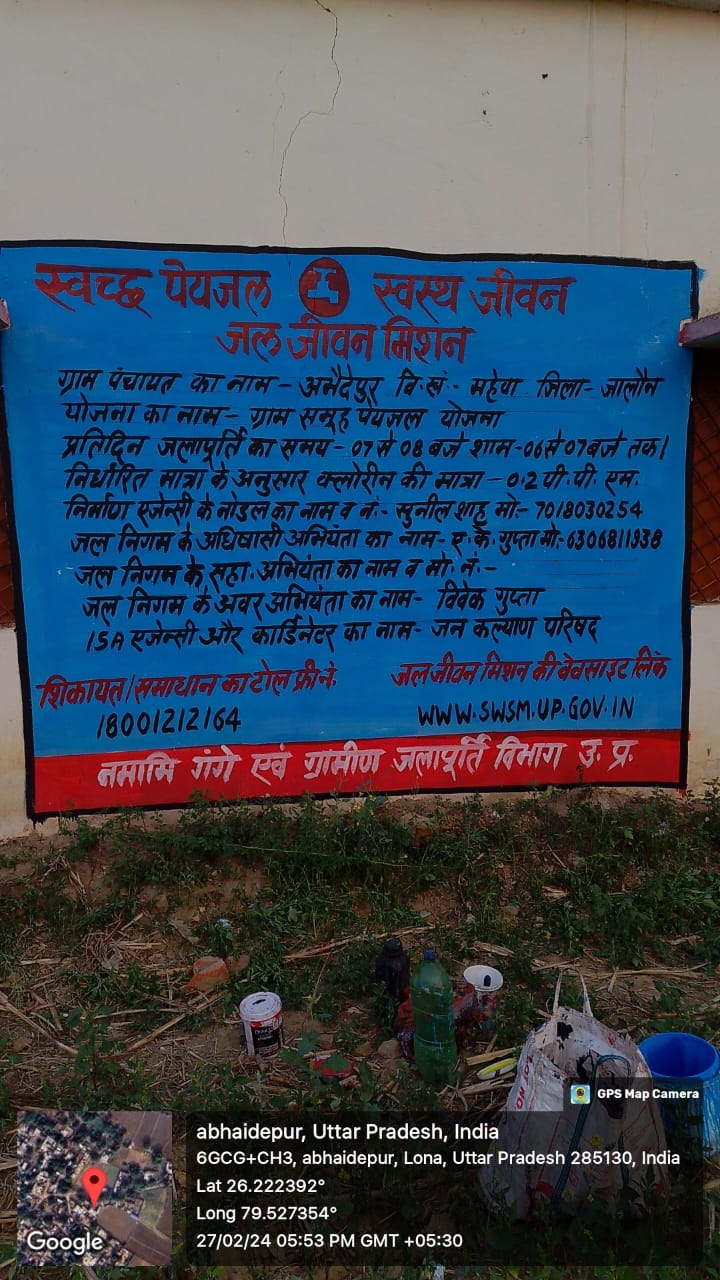 स्वच्छ पेयजल स्वस्थ जीवन
जल जीवन मिशन
ग्राम पंचायत का नाम - अभैदेपुर वि.खं:- महेवा जिला - जालौन
योजना का नाम - ग्राम समूह पेयजल योजना
प्रतिदिन जलापूर्ति का समय - 07 से 08 बजे शाम - 06 से 07 बजे तक।
निर्धारित मात्रा के अनुसार क्लोरीन की मात्रा - 0.2 पी. पी. एम.
निर्माण एजेन्सी के नोडल का नाम व नं:- सुनील शाहू मो:- 7018030254
जल निगम के अधिषासी अभियंता का नाम- ए. के. गुप्ता मो:- 6306811938
जल निगम के सहा. अभियंता का नाम व मो. नं:-
जल निगम के अवर अभियंता का नाम- विवेक गुप्ता
ISA एजेन्सी और कार्डिनेटर का नाम- जन कल्याण परिषद
शिकायत/समाधान का टोल फ्री नं. जल जीवन मिशन की वेवसाइट लिंक
18001212164 WWW.SWSM.UP.GOV.IN
नमामि गंगे एवं ग्रामीण जलापूर्ति विभाग उ. प्र.
GPS Map Camera
abhaidepur, Uttar Pradesh, India
6GCG+CH3, abhaidepur, Lona, Uttar Pradesh 285130, India
Lat 26.222392°
Long 79.527354°
27/02/24 05:53 PM GMT +05:30
Google